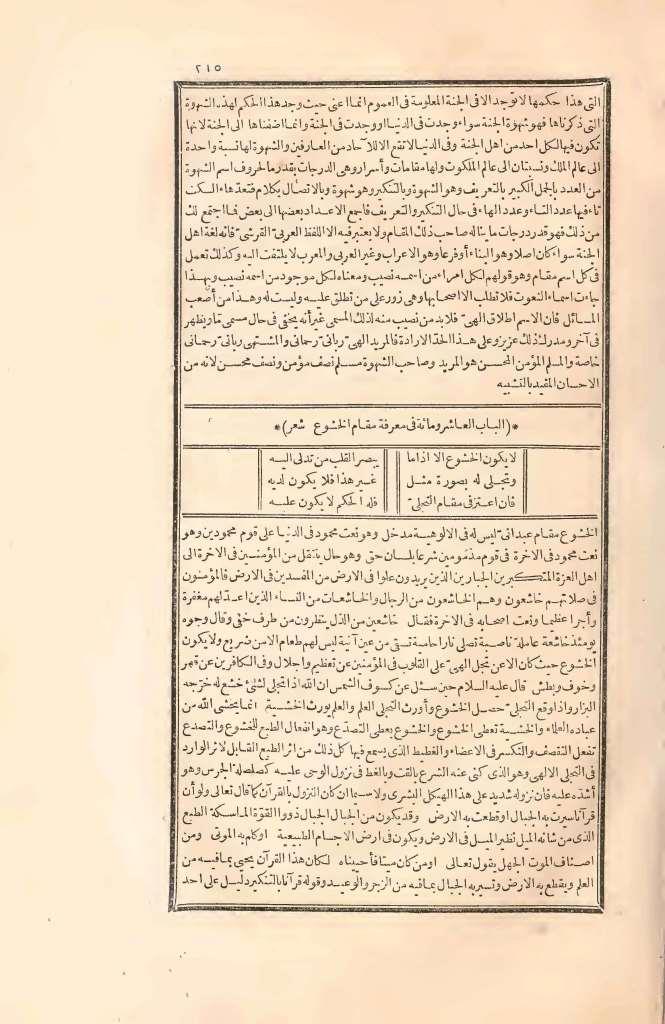 ٢١٥
التى هذا حكمها لا توجد الا فى الجنة المعلومة فى العموم انما اعنى حيث وجد هذا الحكم لهذه الشهوة
التى ذكرناها فهو شهوة الجنة سواء وجدت فى الدنيا او وجدت فى الجنة وانما اضفناها الى الجنة لانها
تكون فيها لكل احد من اهل الجنة وفى الدنيا لا تقع الا للآحاد من العارفين والشهوة لها نسبة واحدة
الى عالم الملك ونسبتان الى عالم الملكوت ولها مقامات وأسرار وهى الدرجات بقدر ما لحروف اسم الشهوة
من العدد بالجمل الكبير بالتعريف وهو الشهوة وبالتنكير وهو شهوة وبالاتصال بكلام فتعد هاء السكت
تاء فيها عدد التاء وعدد الهاء فى حال التنكير والتعريف فاجمع الاعداد بعضها الى بعض فما اجتمع لك
من ذلك فهو قدر درجات ما يناله صاحب ذلك المقام ولا يعتبر فيه الا اللفظ العربىّ القرشىّ فانه لغة اهل
الجنة سواء كان اصلا وهو البناء أو فرعا وهو الاعراب وغير العربى والمعرب لا يلتفت اليه وكذلك تعمل
فى كل اسم مقام وهو قولهم لكل امرىء من اسمه نصيب ومعناه لكل موجود من اسمه نصيب وبهذا
جاءت اسماء النعوت فلا تطلب الا اصحابها وهى زور على من تطلق عليه وليست له وهذا من أصعب
المسائل فان الاسم اطلاق الهىّ فلا بد من نصيب منه لذلك المسمى غير أنه يخفى فى حال مسمى ما ويظهر
فى آخر ومدرك ذلك عزيز وعلى هذا الحدّ الارادة فالمريد الهىّ ربانىّ رحمانى والمشتهى ربانىّ رحمانى
خاصة والمسلم المؤمن المحسن هو المريد وصاحب الشهوة مسلم نصف مؤمن ونصف محسن لانه من
الاحسان المقيد بالتشبيه
*(الباب العاشر ومائة فى معرفة مقام الخشوع شعر)*
لا يكون الخشوع الا اذا ما يبصر القلب من تدلى اليه
وتجلى له بصورة مثل غير هذا فلا يكون لديه
فان اعتز فى مقام التجلىّ فله الحكم لا يكون عليه
الخشوع مقام عبدانىّ ليس له فى الالوهية مدخل وهو نعت محمود فى الدنيا على قوم محمودين وهو
نعت محمود فى الآخرة فى قوم مذمومين شرعا بلسان حق وهو حال ينتقل من المؤمنين فى الآخرة الى
اهل العزة المتكبرين الجبارين الذين يريدون علوا فى الارض من المفسدين فى الارض فالمؤمنون
فى صلاتهم خاشعون وهم الخاشعون من الرجال والخاشعات من النساء الذين اعدّ لهم مغفرة
وأجرا عظيما ونعت اصحابه فى الآخرة فقال خاشعين من الذل ينظرون من طرف خفى وقال وجوه
يومئذ خاشعة عاملة ناصبة تصلى نارا حامية تسقى من عين آنية ليس لهم طعام الا من ضريع ولا يكون
الخشوع حيث كان الا عن تجل الهىّ على القلوب فى المؤمنين عن تعظيم واجلال وفى الكافرين عن قهر
وخوف وبطش قال عليه السلام حين سئل عن كسوف الشمس ان الله اذا تجلى لشئ خشع له خرّجه
البزار واذا وقع التجلىّ حصل الخشوع وأورث التجلى العلم والعلم يورث الخشية انما يخشى الله من
عباده العلماء والخشية تعطى الخشوع والخشوع يعطى التصدّع وهو انفعال الطبع للخشوع والتصدع
تفعل التقصف والتكسر فى الاعضاء والغطيط الذى يسمع فيها كل ذلك من اثر الطبع القابل لاثر الوارد
فى التجلى الالهى وهو الذى كنى عنه الشرع بالغت وبالغط فى نزول الوحى عليه كصلصلة الجرس وهو
أشدّه عليه فان نزوله شديد على هذا الهيكل البشرى ولا سيما ان كان النزول بالقرآن كما قال تعالى ولو أن
قرآنا سيرت به الجبال او قطعت به الارض وقد يكون من الجبال الجبال ذووا القوّة الماسكة الطبع
الذى من شانه الميل نظير الميل فى الارض ويكون فى ارض الاجسام الطبيعية او كلم به الموتى ومن
اصناف الموت الجهل يقول تعالى او من كان ميتا فأحييناه لكان هذا القرآن يحيى بما فيه من
العلم ويقطع به الارض وتسير به الجبال بما فيه من الزجر والوعيد وقوله قرآنا بالتنكير دليل على احد